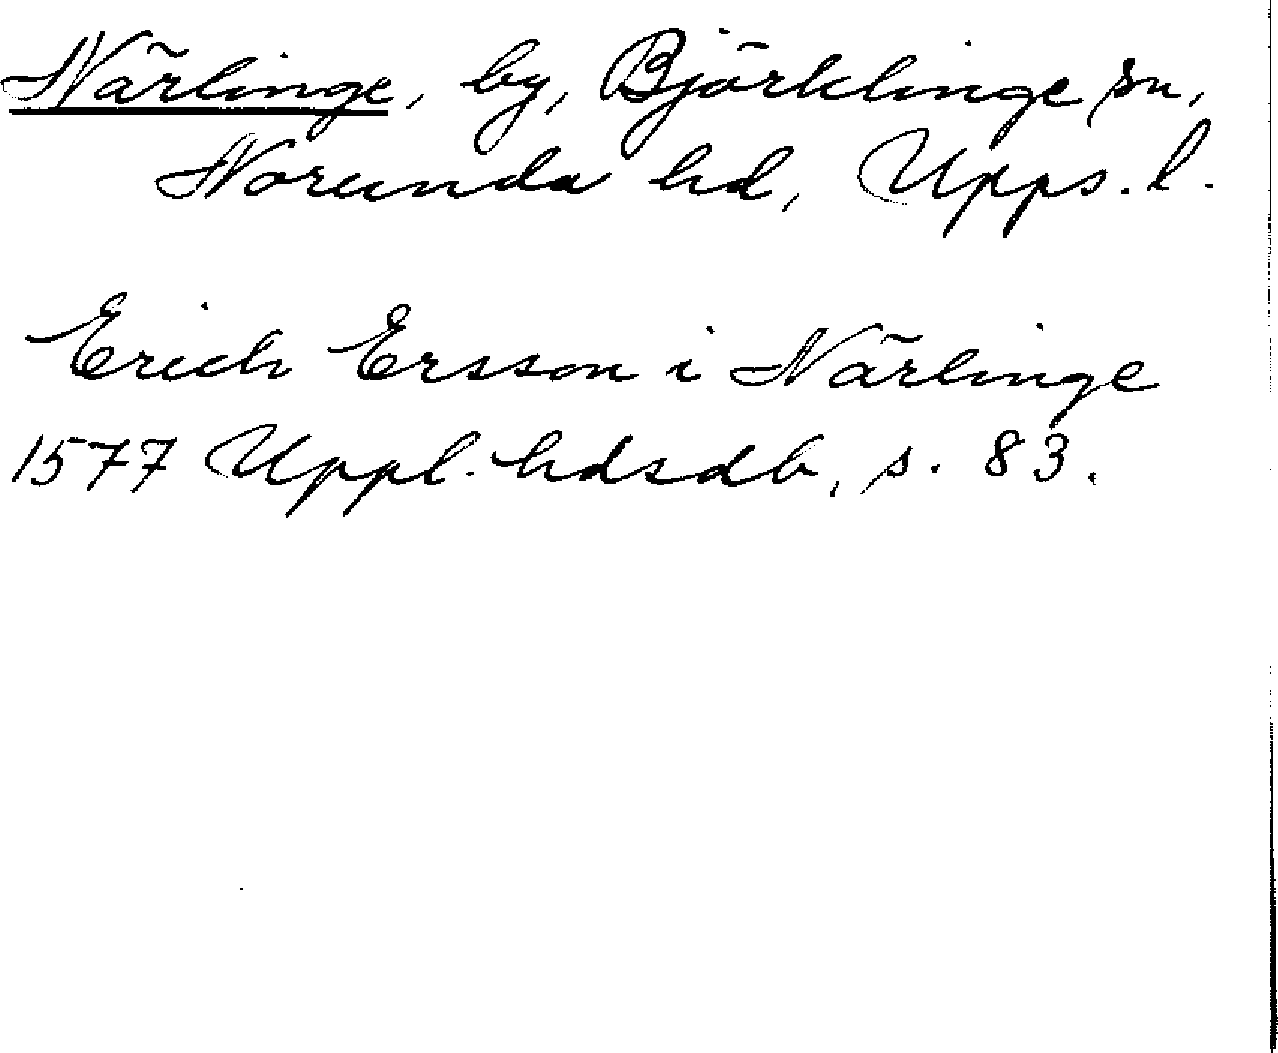 Närlinge, by, Björklinge sn,
Norunda hd, Upps. l.
Erich Ersson i Närlinge
1577 Uppl. hdsdb, s. 83.